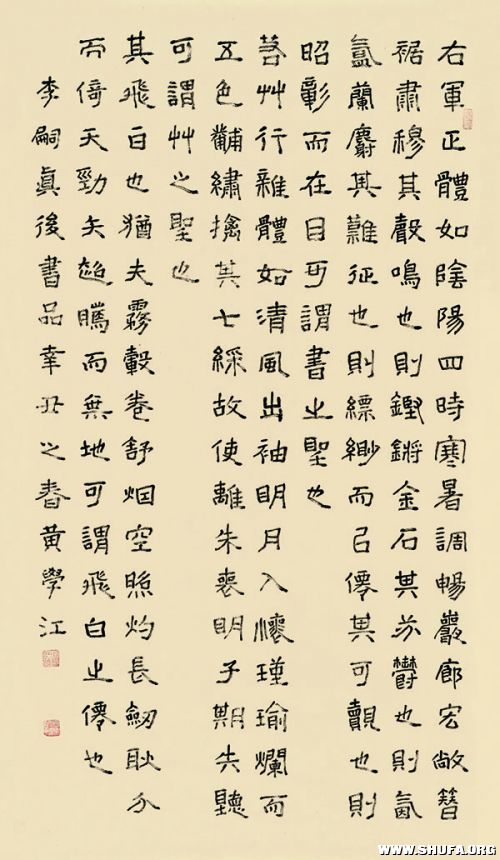 右軍正體如陰陽四時寒暑調暢巖廊宏敞簪
裾肅穆其聲鳴也則鏗鏘金石其芬鬱也則氤
氳蘭麝其難征也則縹緲而已僊其可覿也則
昭彰而在目可謂書之聖也
若艸行雜體如清風出袖明月入懷瑾瑜爛而
五色黼繡摛其七綵故使離朱喪明子期失聽
可謂艸之聖也
其飛白也猶夫霧縠卷舒烟空照灼長劒耿介
而倚天勁矢超騰而無地可謂飛白之僊也
李嗣眞後書品辛丑之春黄學江
WWW.SHUFA.ORG